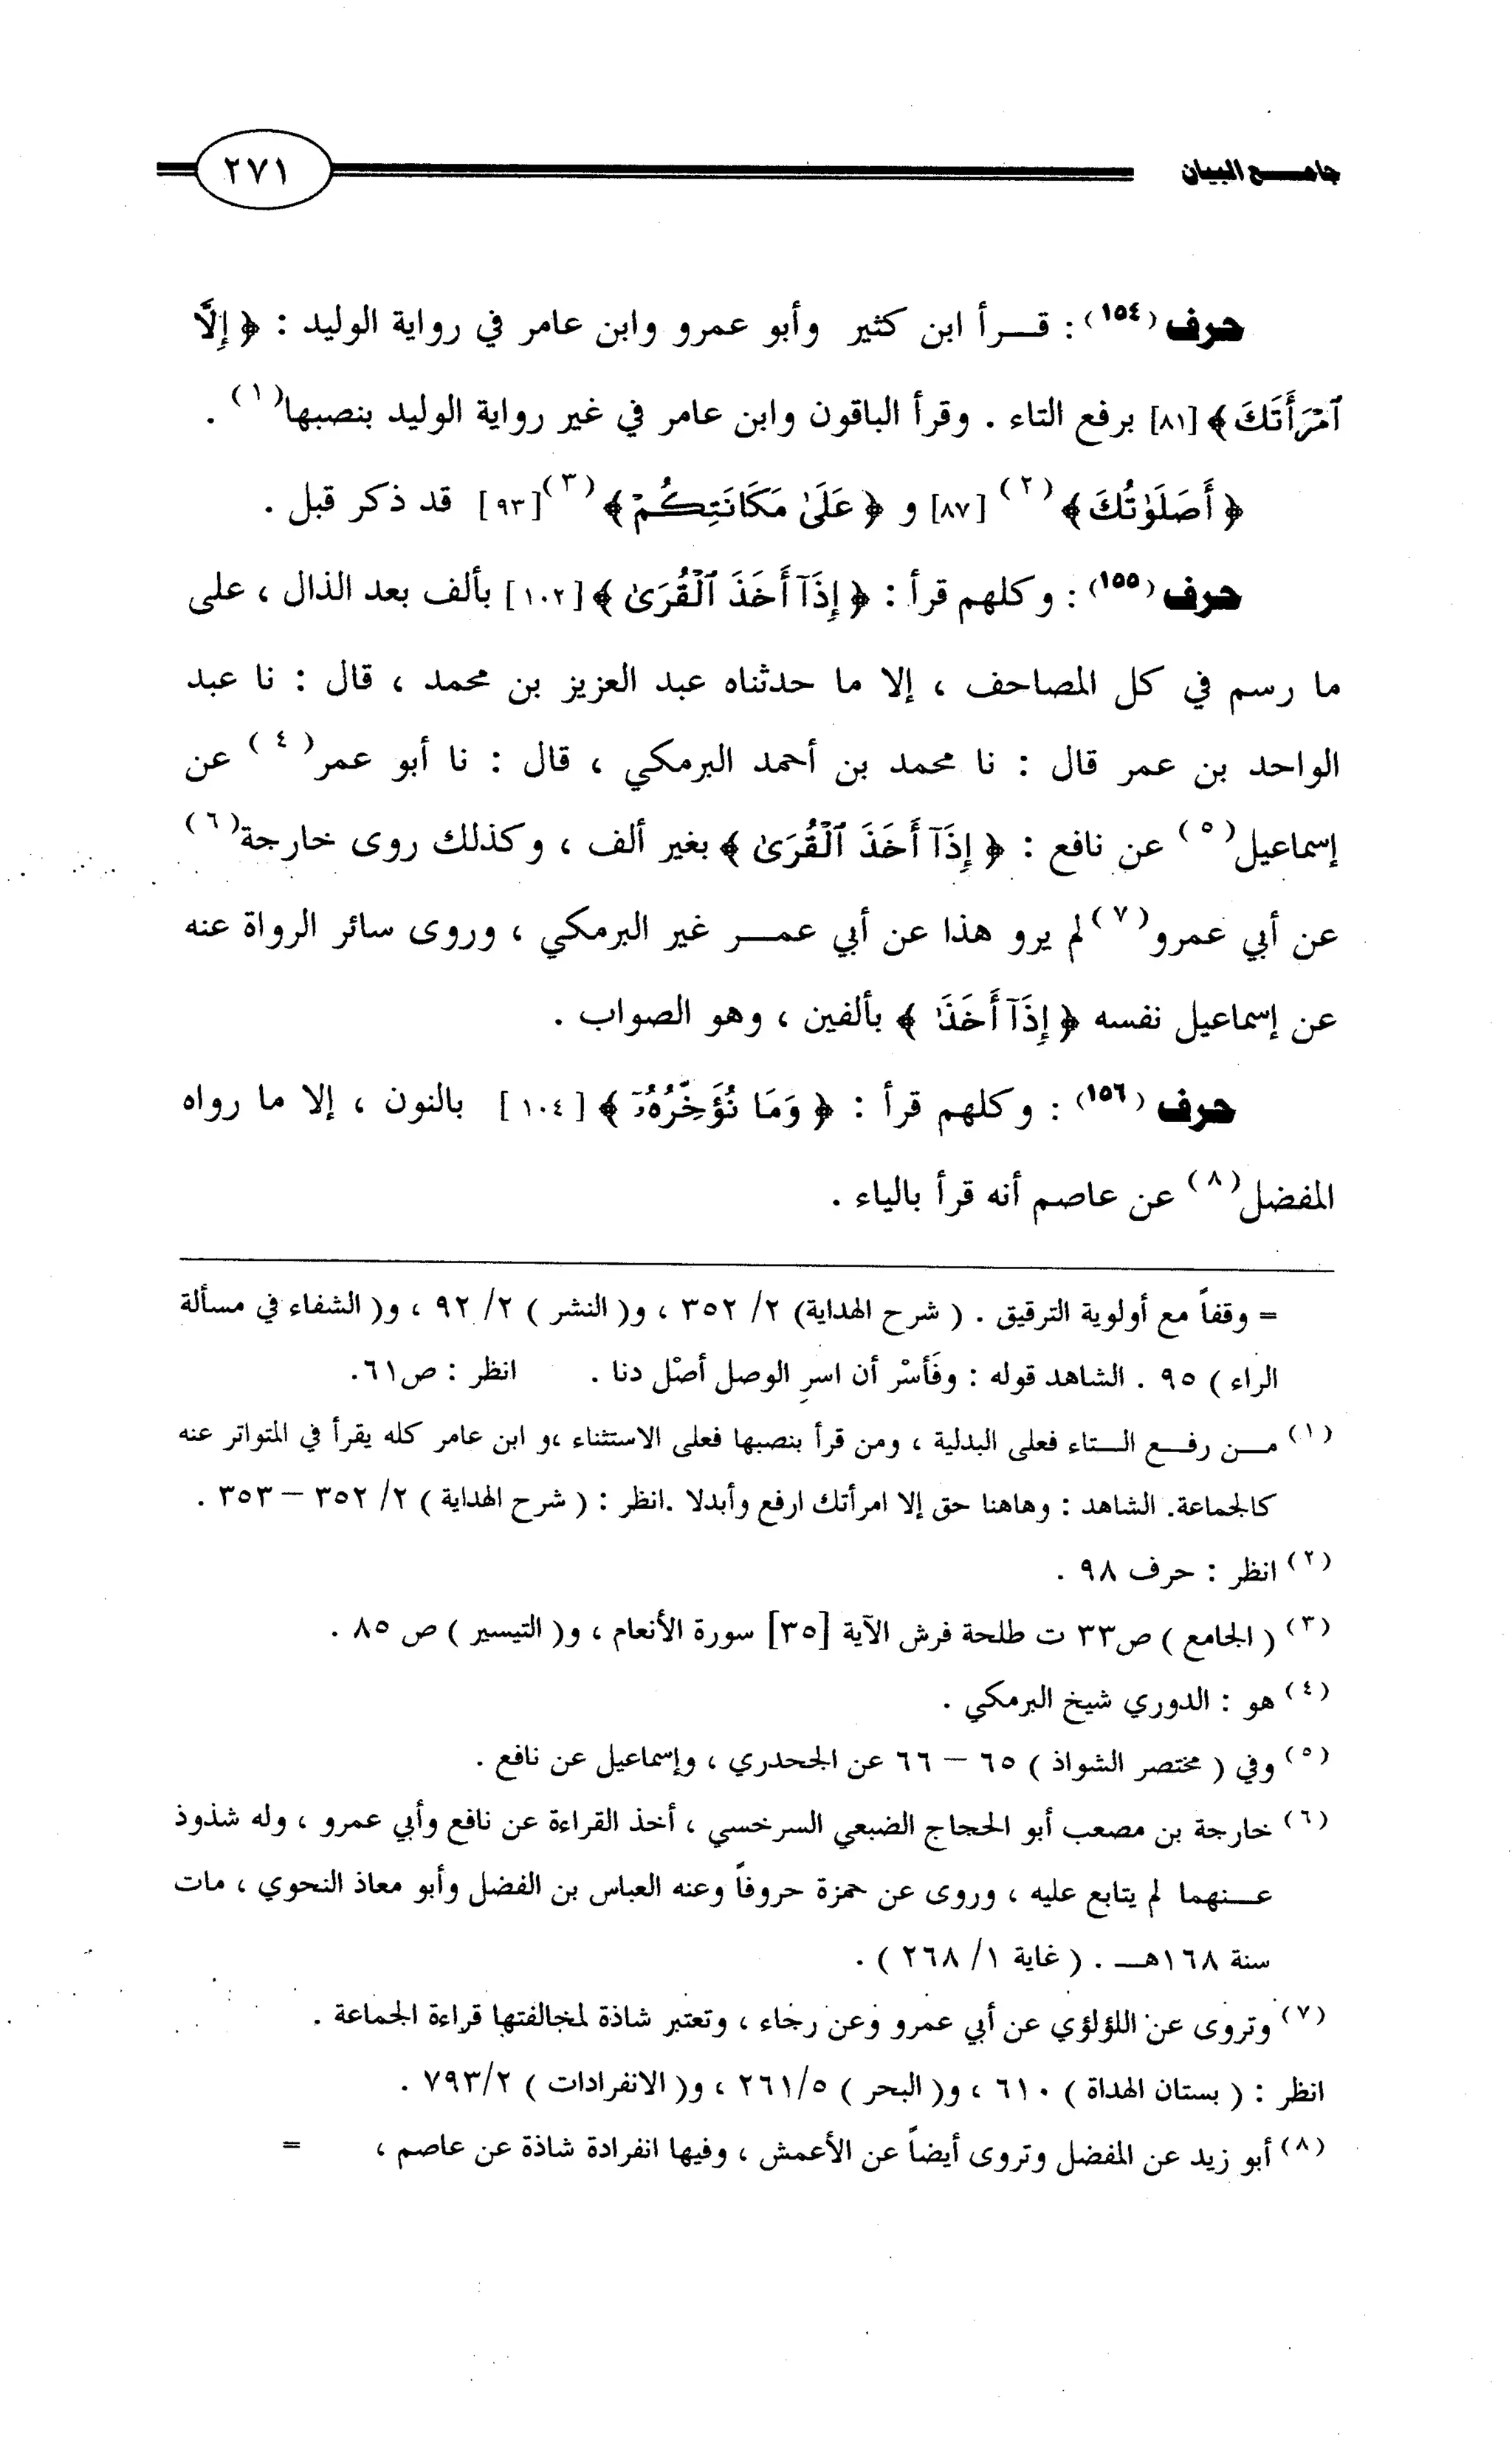 جامع البيان ٢٧١
حرف (١٥٤) : قرأ ابن كثير وأبو عمرو وابن عامر في رواية الوليد : ﴿ إِلَّا
ٱمْرَأَتَكَ ﴾ [٨١] برفع التاء . وقرأ الباقون وابن عامر في غير رواية الوليد بنصبها(١) .
﴿ أَصَلَوٰتُكَ ﴾(٢) [٨٧] و ﴿ عَلَىٰ مَكَانَتِكُمْ ﴾(٣)[٩٣] قد ذكر قبل .
حرف (١٥٥) : وكلهم قرأ : ﴿ إِذَآ أَخَذَ ٱلْقُرَىٰ ﴾[١٠٢] بألف بعد الذال ، على
ما رسم في كل المصاحف ، إلا ما حدثناه عبد العزيز بن محمد ، قال : نا عبد
الواحد بن عمر قال : نا محمد بن أحمد البرمكي ، قال : نا أبو عمر(٤) عن
إسماعيل(٥) عن نافع : ﴿ إِذَآ أَخَذَ ٱلْقُرَىٰ ﴾ بغير ألف ، وكذلك روى خارجة(٦)
عن أبي عمرو(٧) لم يرو هذا عن أبي عمر غير البرمكي ، وروى سائر الرواة عنه
عن إسماعيل نفسه ﴿ إِذَآ أَخَذَ ﴾ بألفين ، وهو الصواب .
حرف (١٥٦) : وكلهم قرأ : ﴿ وَمَا نُؤَخِّرُهُۥٓ ﴾[١٠٤] بالنون ، إلا ما رواه
المفضل(٨) عن عاصم أنه قرأ بالياء .
= وقفاً مع أولوية الترقيق . ( شرح الهداية) ٢/ ٣٥٢ ، و( النشر ) ٢/ ٩٢ ، و( الشفاء في مسألة
الراء ) ٩٥ . الشاهد قوله : وفَأسْرِ أن اسرِ الوصل أصْل دنا . انظر : ص٦١.
(١) من رفع التاء فعلى البدلية ، ومن قرأ بنصبها فعلى الاستثناء ،و ابن عامر كله يقرأ في المتواتر عنه
كالجماعة. الشاهد : وهاهنا حق إلا امرأتك ارفع وأبدلا .انظر : ( شرح الهداية ) ٢/ ٣٥٢ – ٣٥٣ .
(٢) انظر : حرف ٩٨ .
(٣) ( الجامع ) ص٣٣ ت طلحة فرش الآية [٣٥] سورة الأنعام ، و( التيسير ) ص ٨٥ .
(٤) هو : الدوري شيخ البرمكي .
(٥) وفي ( مختصر الشواذ ) ٦٥ – ٦٦ عن الجحدري ، وإسماعيل عن نافع .
(٦) خارجة بن مصعب أبو الحجاج الضبعي السرخسي ، أخذ القراءة عن نافع وأبي عمرو ، وله شذوذ
عنهما لم يتابع عليه ، وروى عن حمزة حروفاً وعنه العباس بن الفضل وأبو معاذ النحوي ، مات
سنة ١٦٨هـ . ( غاية ١/ ٢٦٨ ) .
(٧) وتروى عن اللؤلؤي عن أبي عمرو وعن رجاء ، وتعتبر شاذة لمخالفتها قراءة الجماعة .
انظر : ( بستان الهداة ) ٦١٠ ، و( البحر ) ٢٦١/٥ ، و( الانفرادات ) ٧٩٣/٢ .
(٨) أبو زيد عن المفضل وتروى أيضاً عن الأعمش ، وفيها انفرادة شاذة عن عاصم ، =